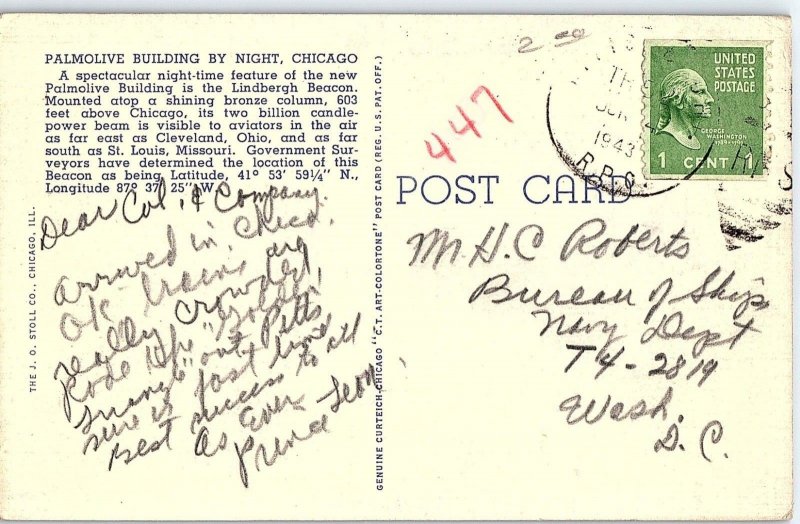 PALMOLIVE BUILDING BY NIGHT, CHICAGO
A spectacular night-time feature of the new
Palmolive Building is the Lindbergh Beacon.
Mounted atop a shining bronze column, 603
feet above Chicago, its two billion candle-
power beam is visible to aviators in the air
as far east as Cleveland, Ohio, and as far
south as St. Louis, Missouri. Government Sur-
veyors have determined the location of this
Beacon as being Latitude, 41° 53' 59¼" N.,
Longitude 87° 37' 25" W.
Dear Col. & Company.
Arrived in Chico.
OK trains are
really crowded,
Rode
out of Pitts
sure is fast
Best success to all
As Ever
Prince Leon
THE J. O. STOLL CO., CHICAGO, ILL.
GENUINE CURTEICH-CHICAGO "C. T. ART-COLORTONE" POST CARD (REG. U. S. PAT. OFF.)
2 00
447
JUN
1943
R.P.O.
UNITED
STATES
POSTAGE
GEORGE
WASHINGTON
1789-1797
1 CENT 1
POST CARD
Mr H.C Roberts
Bureau of Ships
Navy Dept
T4-2819
Wash.
D.C.